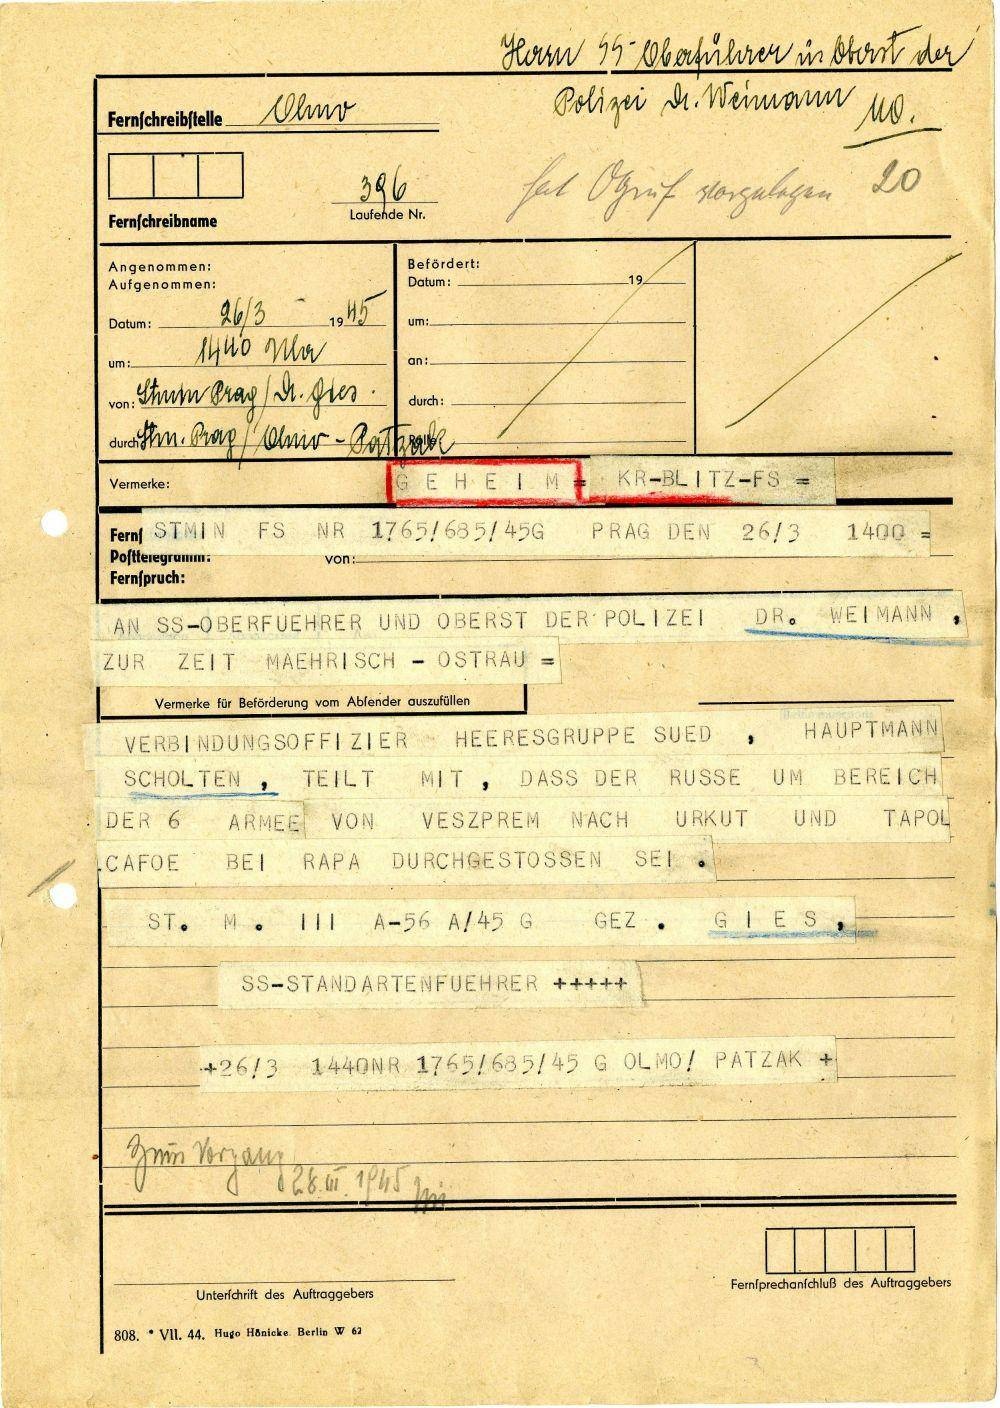 Herrn SS-Oberführer u. Oberst der
Polizei Dr. Weimann
Fernschreibstelle Olmo
20
hat Ogruf vorgelegen
396
Laufende Nr.
Fernschreibname
Angenommen:
Aufgenommen:
Datum: 26/3 - 1945
um: 1440 Uhr
von: Stmin Prag / Dr. Gies.
durch Stm. Prag / Olmo - Patzak
Befördert:
Datum: 19
um:
an:
durch:
Rolle:
Vermerke:
GEHEIM = KR-BLITZ-FS =
Fern STMIN FS NR 1765/685/45G PRAG DEN 26/3 1400 =
Posttelegramm: von:
Fernspruch:
AN SS-OBERFUEHRER UND OBERST DER POLIZEI DR. WEIMANN,
ZUR ZEIT MAEHRISCH - OSTRAU =
Vermerke für Beförderung vom Absender auszufüllen
VERBINDUNGSOFFIZIER HEERESGRUPPE SUED , HAUPTMANN
SCHOLTEN , TEILT MIT , DASS DER RUSSE UM BEREICH
DER 6 ARMEE VON VESZPREM NACH URKUT UND TAPOL
CAFOE BEI RAPA DURCHGESTOSSEN SEI .
ST. M. III A-56 A/45 G GEZ. GIES,
SS-STANDARTENFUEHRER +++++
+26/3 1440NR 1765/685/45 G OLMO/ PATZAK +
Zum Vorgang
28.III.1945
Unterschrift des Auftraggebers
Fernsprechanschluß des Auftraggebers
808. * VII. 44. Hugo Hönicke. Berlin W 62